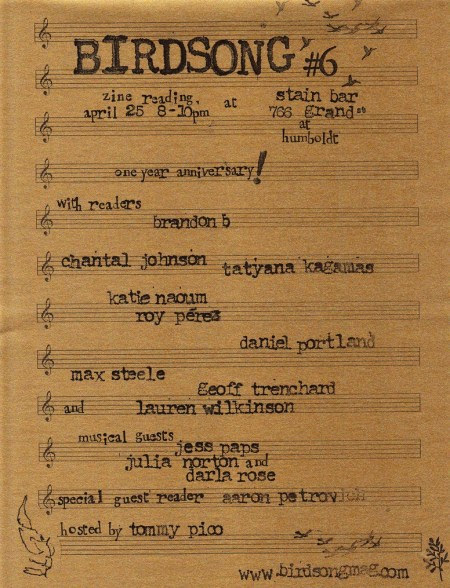 BIRDSONG #6
zine reading, at stain bar
april 25 8-10pm 766 grand st
at
humboldt
one year anniversary!
with readers
brandon b
chantal johnson
tatyana kagamas
katie naoum
roy pérez
daniel portland
max steele
geoff trenchard
and lauren wilkinson
musical guests
jess paps
julia norton and
darla rose
special guest reader aaron petrovich
hosted by tommy pico
www.birdsongmag.com